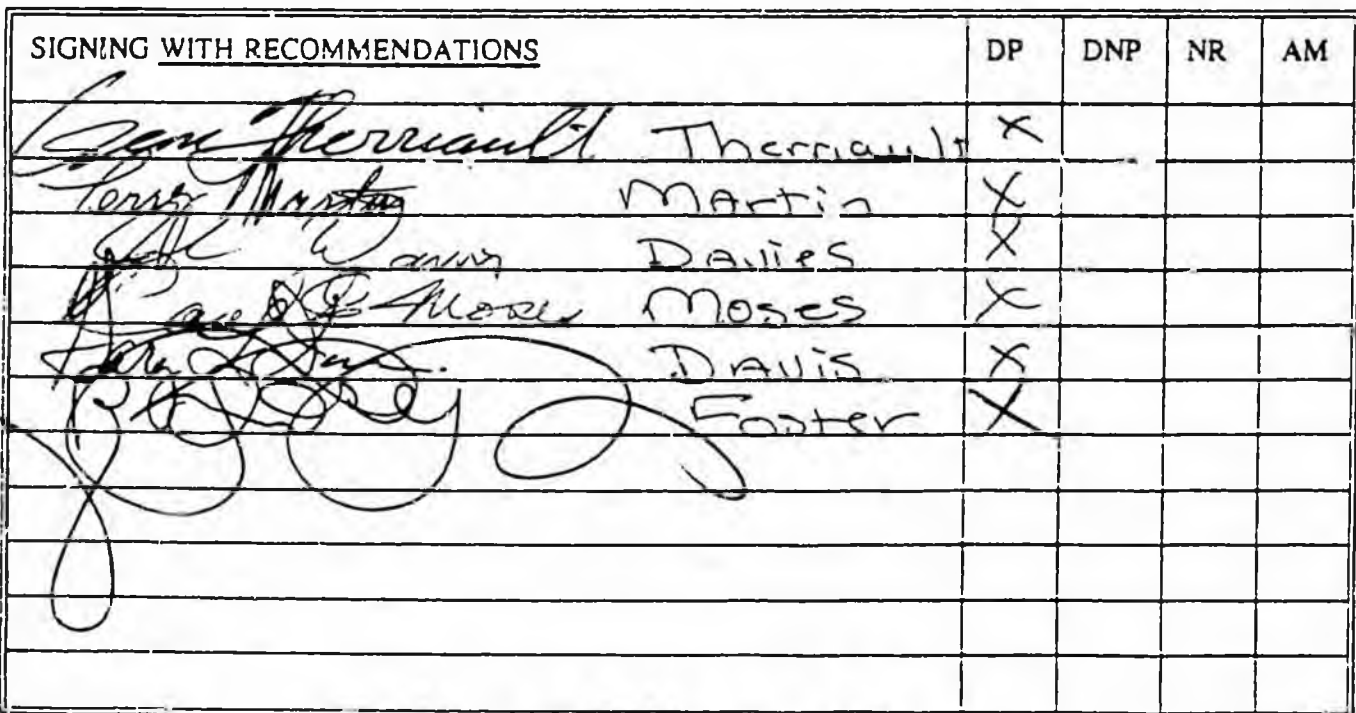 SIGNING WITH RECOMMENDATIONS DP DNP NR AM
Gene Therriault Therriault X
Terry Martin Martin X
Davies X
Moses Moses X
Davis X
Foster X